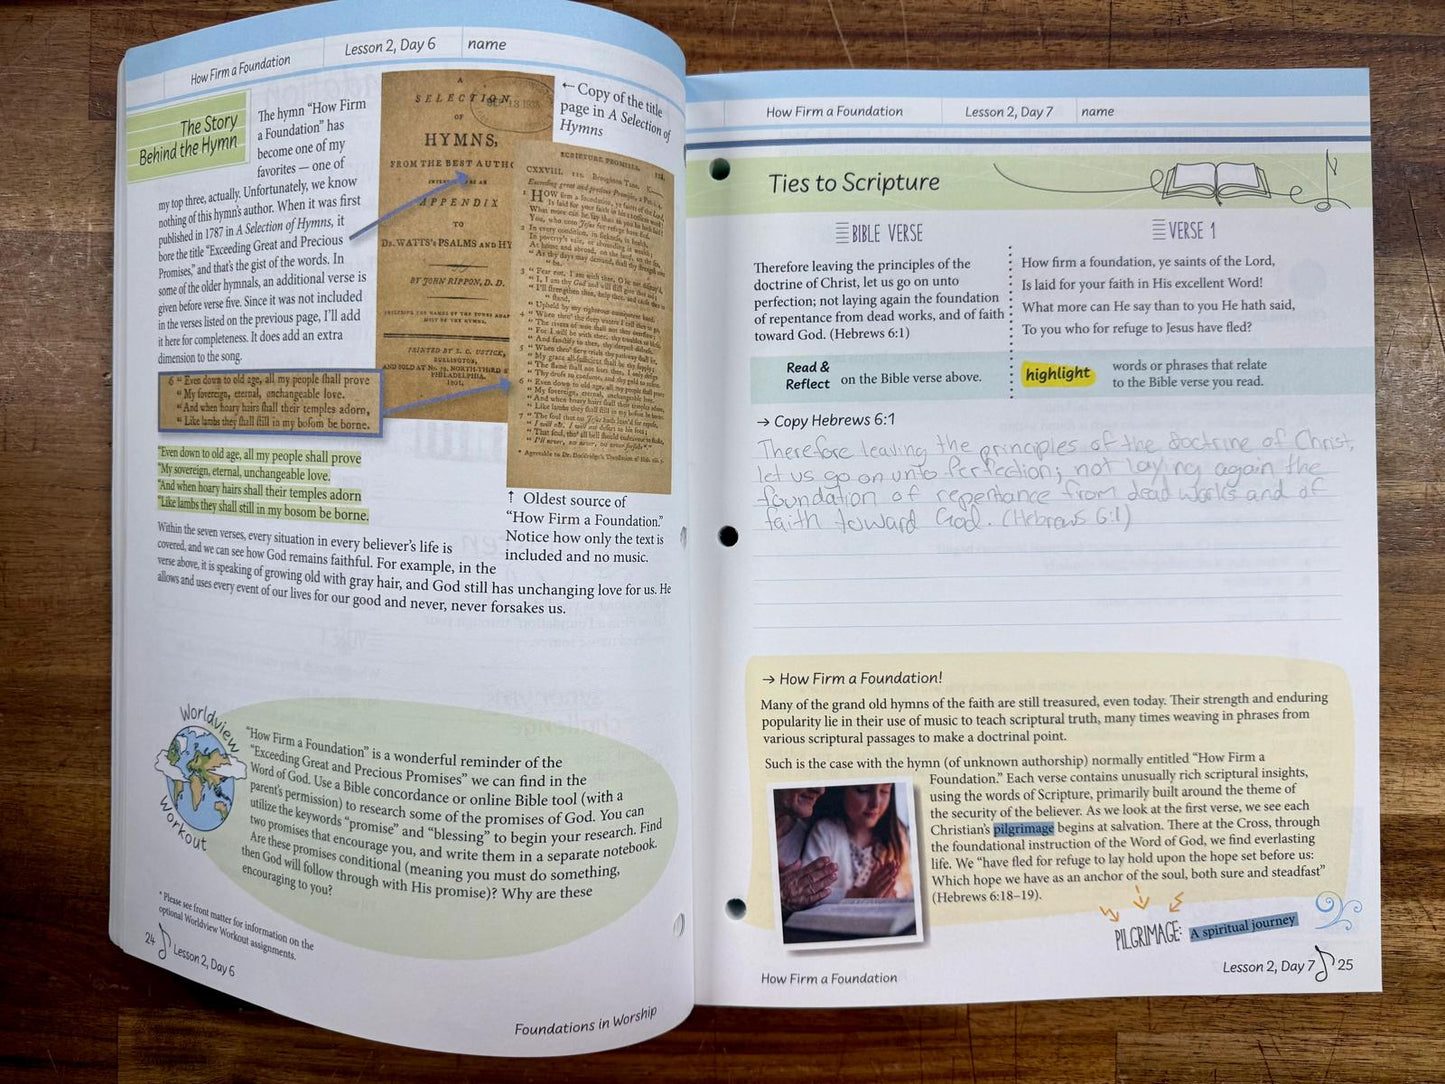 How Firm a Foundation
Lesson 2, Day 6
name
The Story
Behind the Hymn
The hymn "How Firm
a Foundation" has
become one of my
favorites — one of
my top three, actually. Unfortunately, we know
nothing of this hymn's author. When it was first
published in 1787 in A Selection of Hymns, it
bore the title "Exceeding Great and Precious
Promises," and that's the gist of the words. In
some of the older hymnals, an additional verse is
given before verse five. Since it was not included
in the verses listed on the previous page, I'll add
it here for completeness. It does add an extra
dimension to the song.
6 " Even down to old age, all my people ſhall prove
" My ſovereign, eternal, unchangeable love.
" And when hoary hairs ſhall their temples adorn,
" Like lambs they ſhall ſtill in my boſom be borne.
"Even down to old age, all my people shall prove
"My sovereign, eternal, unchangeable love.
"And when hoary hairs shall their temples adorn
"Like lambs they shall still in my bosom be borne.
Within the seven verses, every situation in every believer's life is
covered, and we can see how God remains faithful. For example, in the
verse above, it is speaking of growing old with gray hair, and God still has unchanging love for us. He
allows and uses every event of our lives for our good and never, never forsakes us.
A
SELECTION
OF
HYMNS,
FROM THE BEST
APPENDIX
TO
Dr. WATTS's PSALMS AND
BY JOHN RIPPON, D. D.
PRINTED BY
BURLINGTON,
AND SOLD AT No. NORTH-THIRD
PHILADELPHIA.
1801.
← Copy of the title
page in A Selection of
Hymns
SCRIPTURE PROMISES.
CXXVIII. 11s. Broughton Tune.
Exceeding great and precious Promises,
1 HOW firm a foundation, ye ſaints of the Lord,
Is laid for your faith in his excellent word!
What more can he ſay than to you he hath ſaid,
You, who unto Jeſus for refuge have fled.
2 In every condition, in ſickneſs, in health,
In poverty's vale, or abounding in wealth;
At home and abroad, on the land, on the ſea,
" As thy days may demand, ſhall thy ſtrength ever
" be.
↑ Oldest source of
"How Firm a Foundation."
Notice how only the text is
included and no music.
Worldview
Workout
"How Firm a Foundation" is a wonderful reminder of the
"Exceeding Great and Precious Promises" we can find in the
Word of God. Use a Bible concordance or online Bible tool (with a
parent's permission) to research some of the promises of God. You can
utilize the keywords "promise" and "blessing" to begin your research. Find
two promises that encourage you, and write them in a separate notebook.
Are these promises conditional (meaning you must do something,
then God will follow through with His promise)? Why are these
encouraging to you?
* Please see front matter for information on the
optional Worldview Workout assignments.
24
Lesson 2, Day 6
Foundations in Worship
How Firm a Foundation
Lesson 2, Day 7
name
Ties to Scripture
BIBLE VERSE
Therefore leaving the principles of the
doctrine of Christ, let us go on unto
perfection; not laying again the foundation
of repentance from dead works, and of faith
toward God. (Hebrews 6:1)
VERSE 1
How firm a foundation, ye saints of the Lord,
Is laid for your faith in His excellent Word!
What more can He say than to you He hath said,
To you who for refuge to Jesus have fled?
Read &
Reflect
on the Bible verse above.
highlight
words or phrases that relate
to the Bible verse you read.
→ Copy Hebrews 6:1
Therefore leaving the principles of the doctrine of Christ,
let us go on unto Perfection; not laying again the
foundation of repentance from dead works and of
faith toward God. (Hebrews 6:1)
→ How Firm a Foundation!
Many of the grand old hymns of the faith are still treasured, even today. Their strength and enduring
popularity lie in their use of music to teach scriptural truth, many times weaving in phrases from
various scriptural passages to make a doctrinal point.
Such is the case with the hymn (of unknown authorship) normally entitled "How Firm a
Foundation." Each verse contains unusually rich scriptural insights,
using the words of Scripture, primarily built around the theme of
the security of the believer. As we look at the first verse, we see each
Christian's pilgrimage begins at salvation. There at the Cross, through
the foundational instruction of the Word of God, we find everlasting
life. We "have fled for refuge to lay hold upon the hope set before us:
Which hope we have as an anchor of the soul, both sure and steadfast"
(Hebrews 6:18–19).
PILGRIMAGE: A spiritual journey
How Firm a Foundation
Lesson 2, Day 7
25